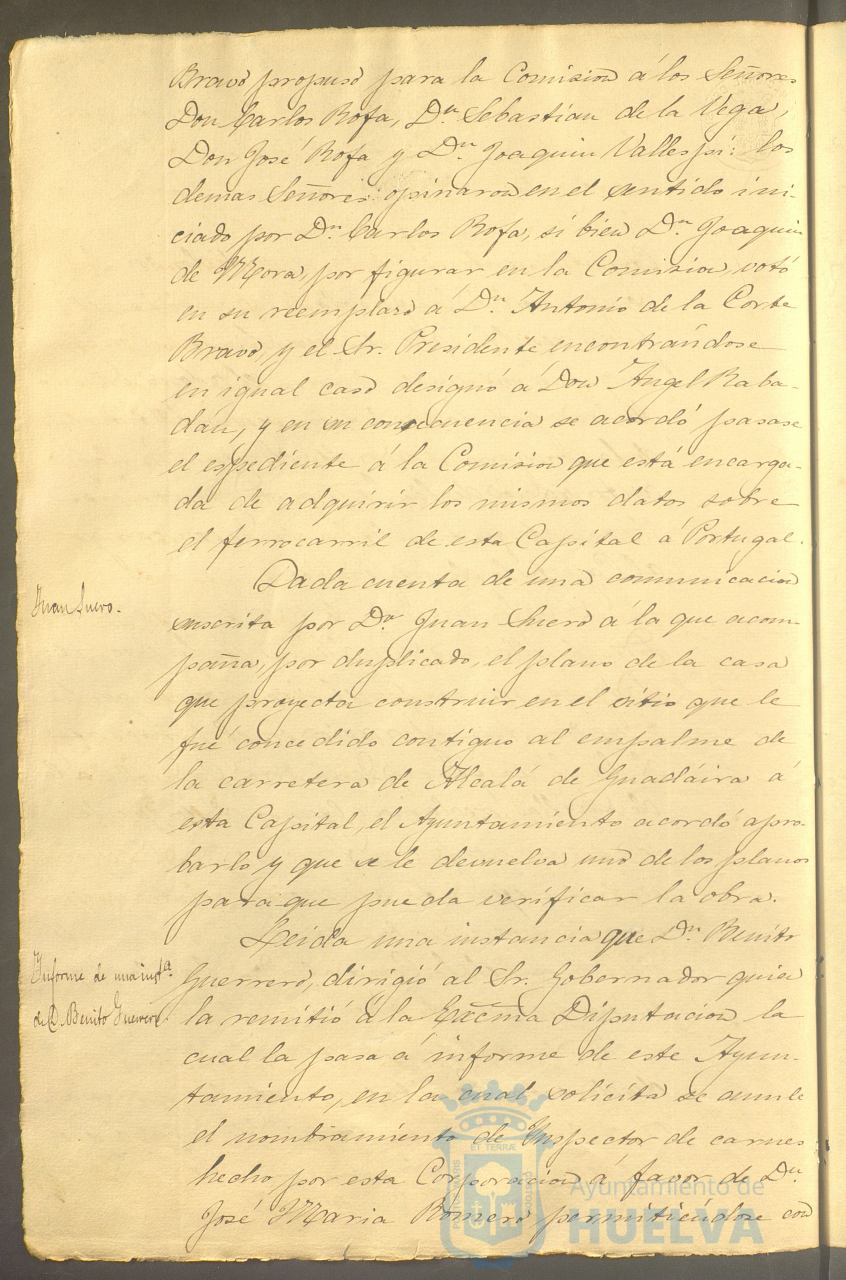 Bravo propuso para la Comision á los Señores
Don Carlos Rofa, Dn. Sebastian de la Vega,
Don José Rofa y Dn. Joaquin Vallespi: los
demas Señores opinaron en el sentido ini-
ciado por Dn. Carlos Rofa, si bien Dn. Joaquin
de Mora, por figurar en la Comision, votó
en su reemplaso á Dn. Antonio de la Corte
Bravo y el Sr. Presidente encontrándose
en igual caso designó á Don Angel Raba-
dán, y en su consecuencia se acordó pasase
el espediente á la Comision que está encarga-
da de adquirir los mismos datos sobre
el ferrocarril de esta Capital á Portugal.
Juan Suero.
Dada cuenta de una comunicacion
suscrita por Dn. Juan Suero á la que acom-
paña, por duplicado, el plano de la casa
que proyecta construir en el sitio que le
fué concedido contiguo al empalme de
la carretera de Alcalá de Guadáira á
esta Capital, el Ayuntamiento acordó apro-
barlo y que se le devuelva uno de los planos
para que pueda verificar la obra.
Informe de una insta.
de D. Benito Guerrero.
Leida una instancia que Dn. Benito
Guerrero, dirigió al Sr. Gobernador quien
la remitió á la Excma Diputacion la
cual la pasa á informe de este Ayun-
tamiento, en la cual solicita se anule
el nombramiento de Inspector de carnes
hecho por esta Corporacion á favor de Dn.
José Maria Romero permitiéndose con
Ayuntamiento de
HUELVA